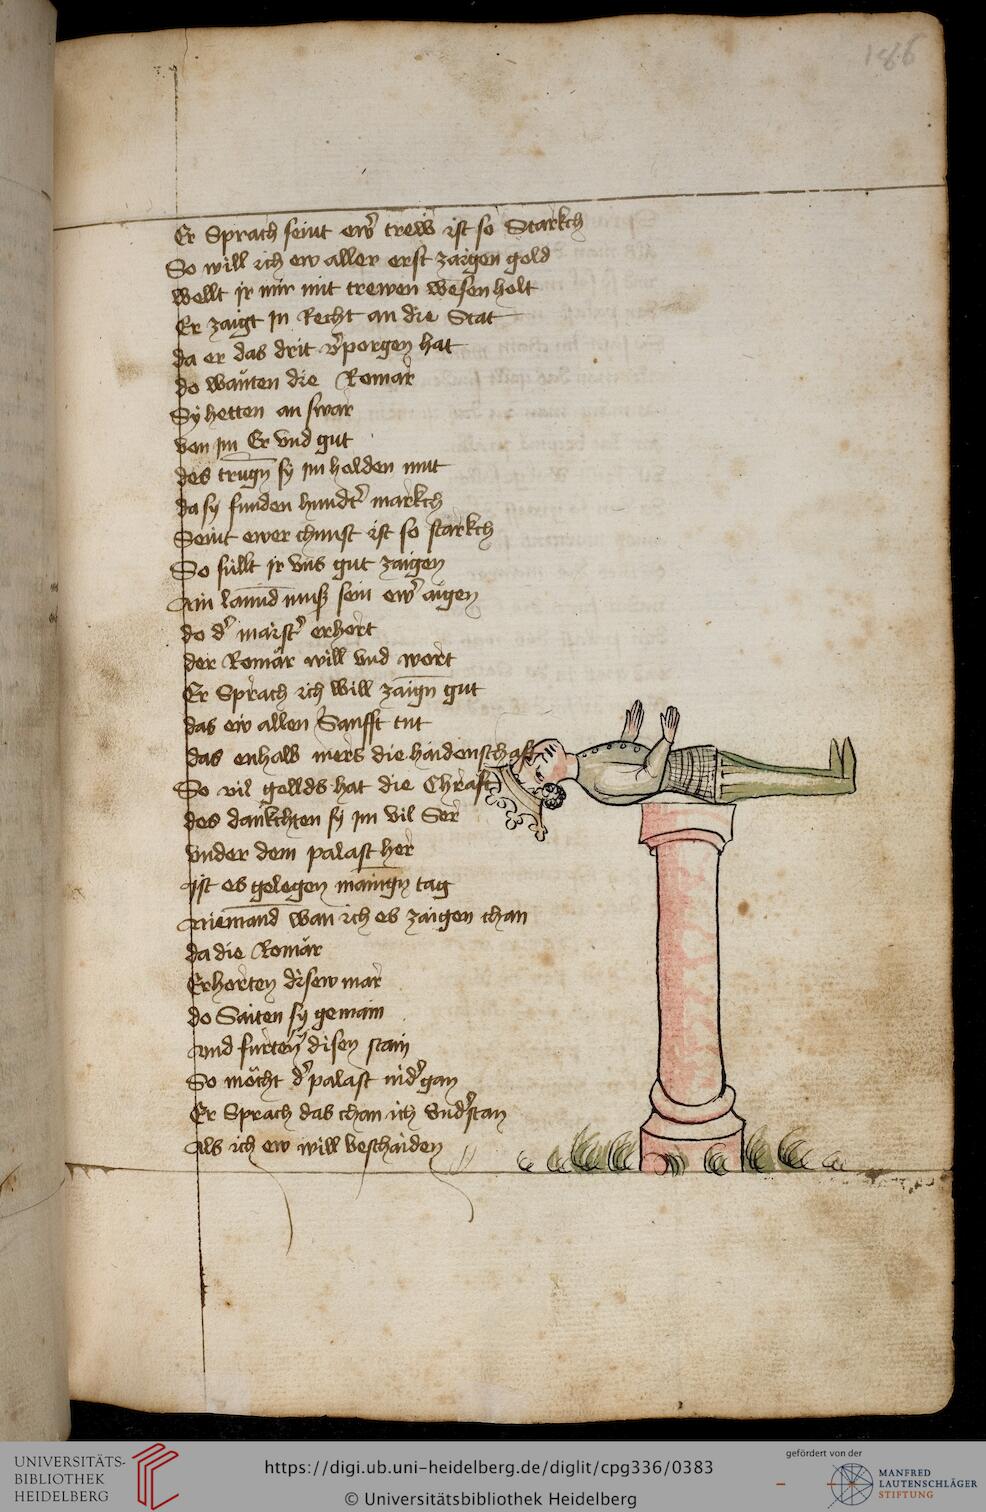 186
Er Sprach seint ewr̄ trew ist so Starkch
So will ich ew aller erst zaigen gold
Wellt jr mir mit trewen wesen holt
Er zaigt jn Recht an die Stat
da er das drit v̄porgen hat
do wanten die Romar
Sÿ hetten an swar
von jm Er vnd gut
des trugn̄ sy jm holden mut
da sy funden hundt̄ markch
Seint ewer chunst ist so starkch
So sullt jr vns gut zaigen
Ain lannd muss sein ewr̄ aigen
do d̄ maist̄ erhort
der Romär will vnd wort
Er Sprach ich will zaign̄ gut
das ew allen Sanfft tut
das enhalb mers die haidenschaft
So vil gollds hat die Chraft
des dankchten sy jm vil Ser
vnder dem palast her
ist es gelegen manign̄ tag
Niemand wan ich es zaigen chan
da die Romär
Erhorten disew mär
do Saiten sy gemain
vnd furten disen stain
So möcht d̄ palast nid̄gan
Er Sprach das chan ich vnd̄stan
Als ich ew will beschaiden
UNIVERSITÄTS-
BIBLIOTHEK
HEIDELBERG
https://digi.ub.uni-heidelberg.de/diglit/cpg336/0383
© Universitätsbibliothek Heidelberg
gefördert von der
MANFRED
LAUTENSCHLÄGER
STIFTUNG